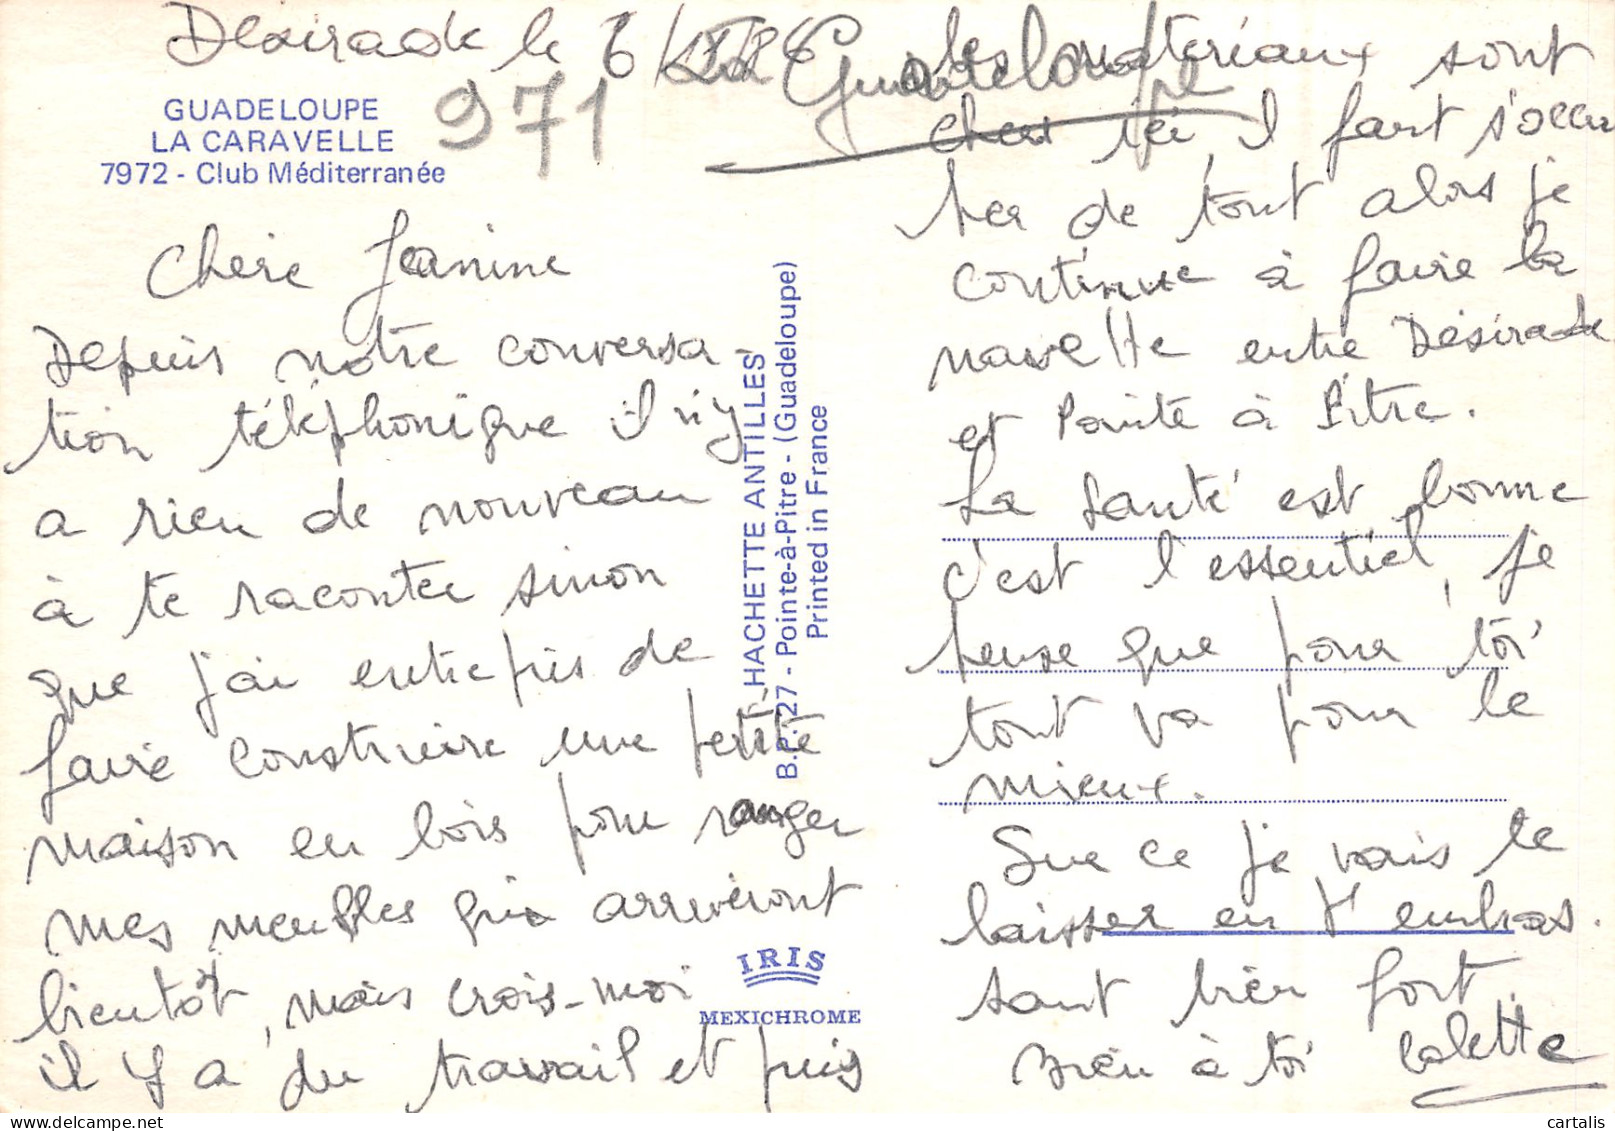 Désirade le 6/
Guadeloupe
971
GUADELOUPE
LA CARAVELLE
7972 - Club Méditerranée
Chère Jeanine
Depuis notre conversa-
tion téléphonique il n'y
a rien de nouveau
à te raconter sinon
que j'ai entrepris de
faire construire une petite
maison en bois pour ranger
mes meubles qui arriveront
bientôt, mais crois-moi
il y a du travail et puis
HACHETTE ANTILLES
B.P. 27 - Pointe-à-Pitre - (Guadeloupe)
Printed in France
IRIS
MEXICHROME
les matériaux sont
chers ici, il faut s'occu
per de tout alors je
continue à faire la
navette entre Désirade
et Pointe à Pitre.
La santé est bonne
c'est l'essentiel, je
pense que pour toi
tout va pour le
mieux.
Sur ce je vais te
laisser en t'embras.
sant bien fort.
Bien à toi Colette
cartalis